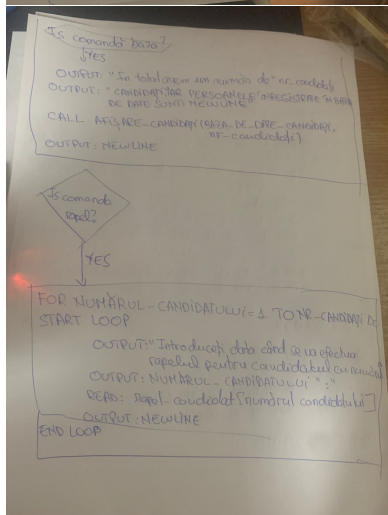 Is comandă baza?
YES
OUTPUT: "In total avem un număr de" nr_candidați
OUTPUT: "CANDIDAȚI, IAR PERSOANELE INREGISTRATE IN BAZA
DE DATE SUNT: NEWLINE
CALL AFIȘARE_CANDIDAȚI (BAZA_DE_DATE_CANDIDAȚI,
nr_candidați)
OUTPUT: NEWLINE
Is comanda
apel?
YES
FOR NUMĂRUL_CANDIDATULUI = 1 TO NR_CANDIDAȚI DO
START LOOP
OUTPUT: "Introduceți data când se va efectua
apelul pentru candidatul cu numărul
OUTPUT: NUMĂRUL_CANDIDATULUI ":"
READ: apel_candidat [numărul candidatului]
OUTPUT: NEWLINE
END LOOP